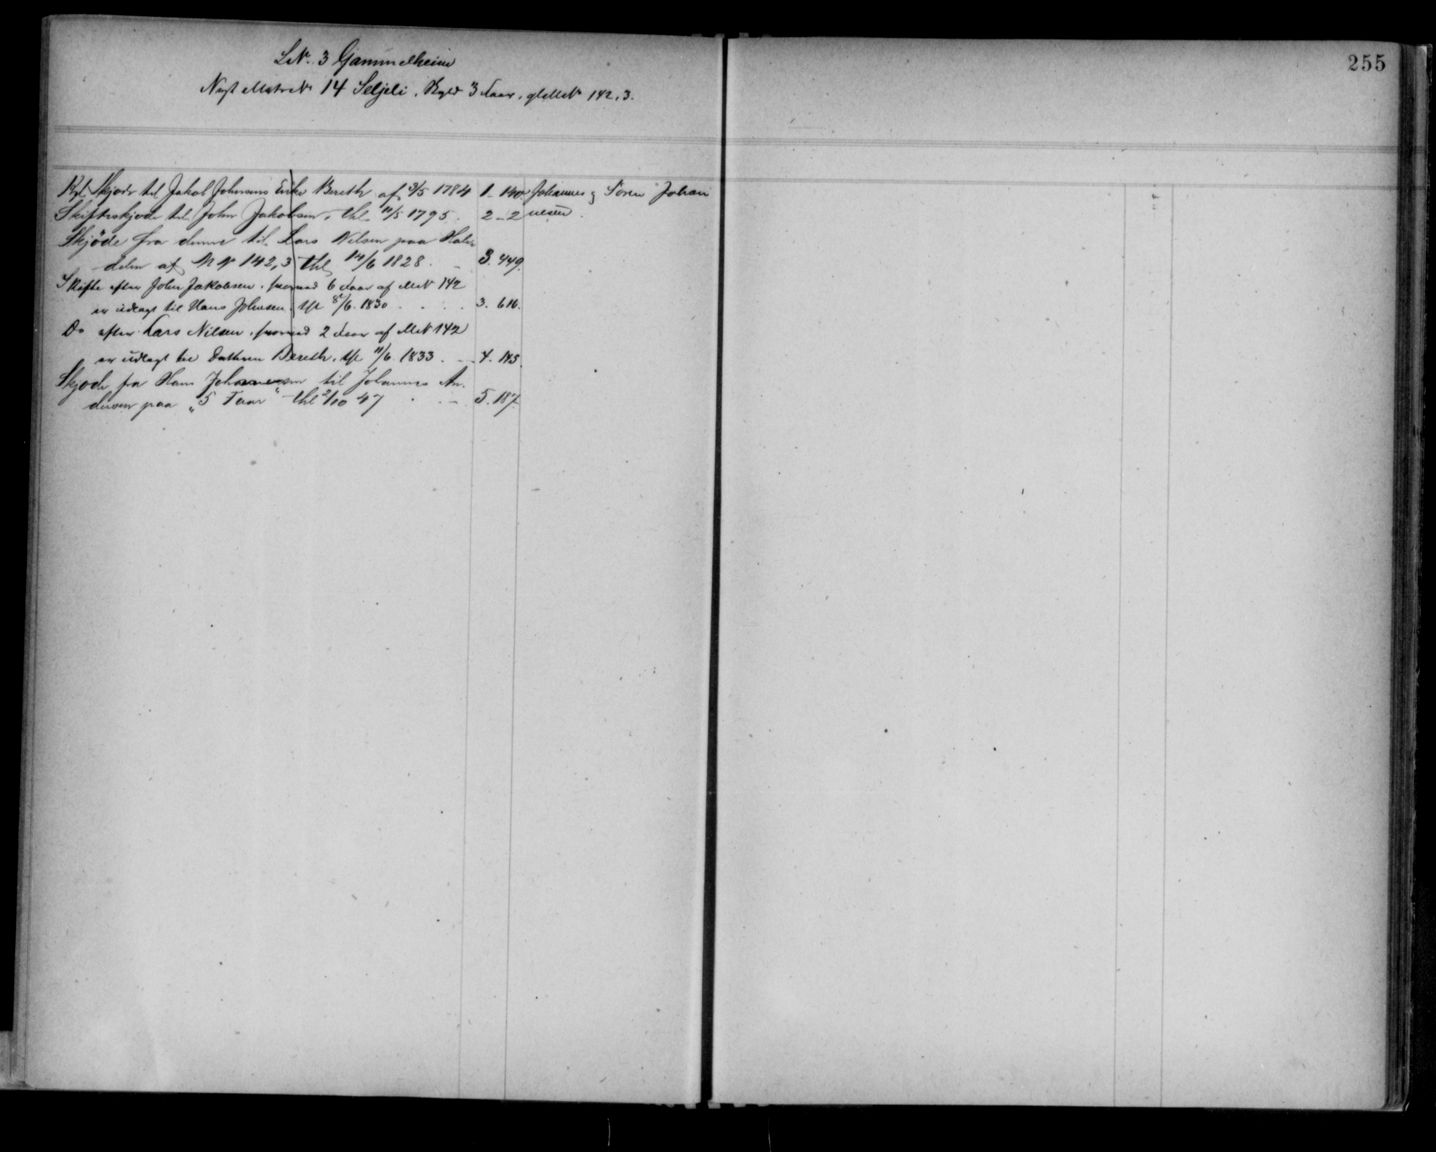 255
LNº 3 Gammelheim
Nyt MatrNº 14 Seljeli. Skyld 3 Faar, glMNº 142,3.
Kgl. Skjøde til Jakob Johnsens Enke Bereth af 3/5 1784 1. 140 Johannes & Søren Johan
Skifteskjøde til John Jakobsen, thl. 11/5 1795. 2-2 nesen.
Skjöde fra denne til Lars Nilsen paa Halv
delen af MNº 142,3 thl 14/6 1828. 3 449.
Skifte efter John Jakobsen. hvorved 6 Faar af MNº 142
er udlagt til Hans Johnsen. thl 8/6 1830 3. 616.
Do efter Lars Nilsen. hvorved 2 Faar af MNº 142
er udlagt Datteren Bereth. thl 11/6 1833. 4. 145.
Skjøde fra Hans Johannesen til Johannes An-
dersen paa "5 Faar" thl 2/10 47 5. 187.